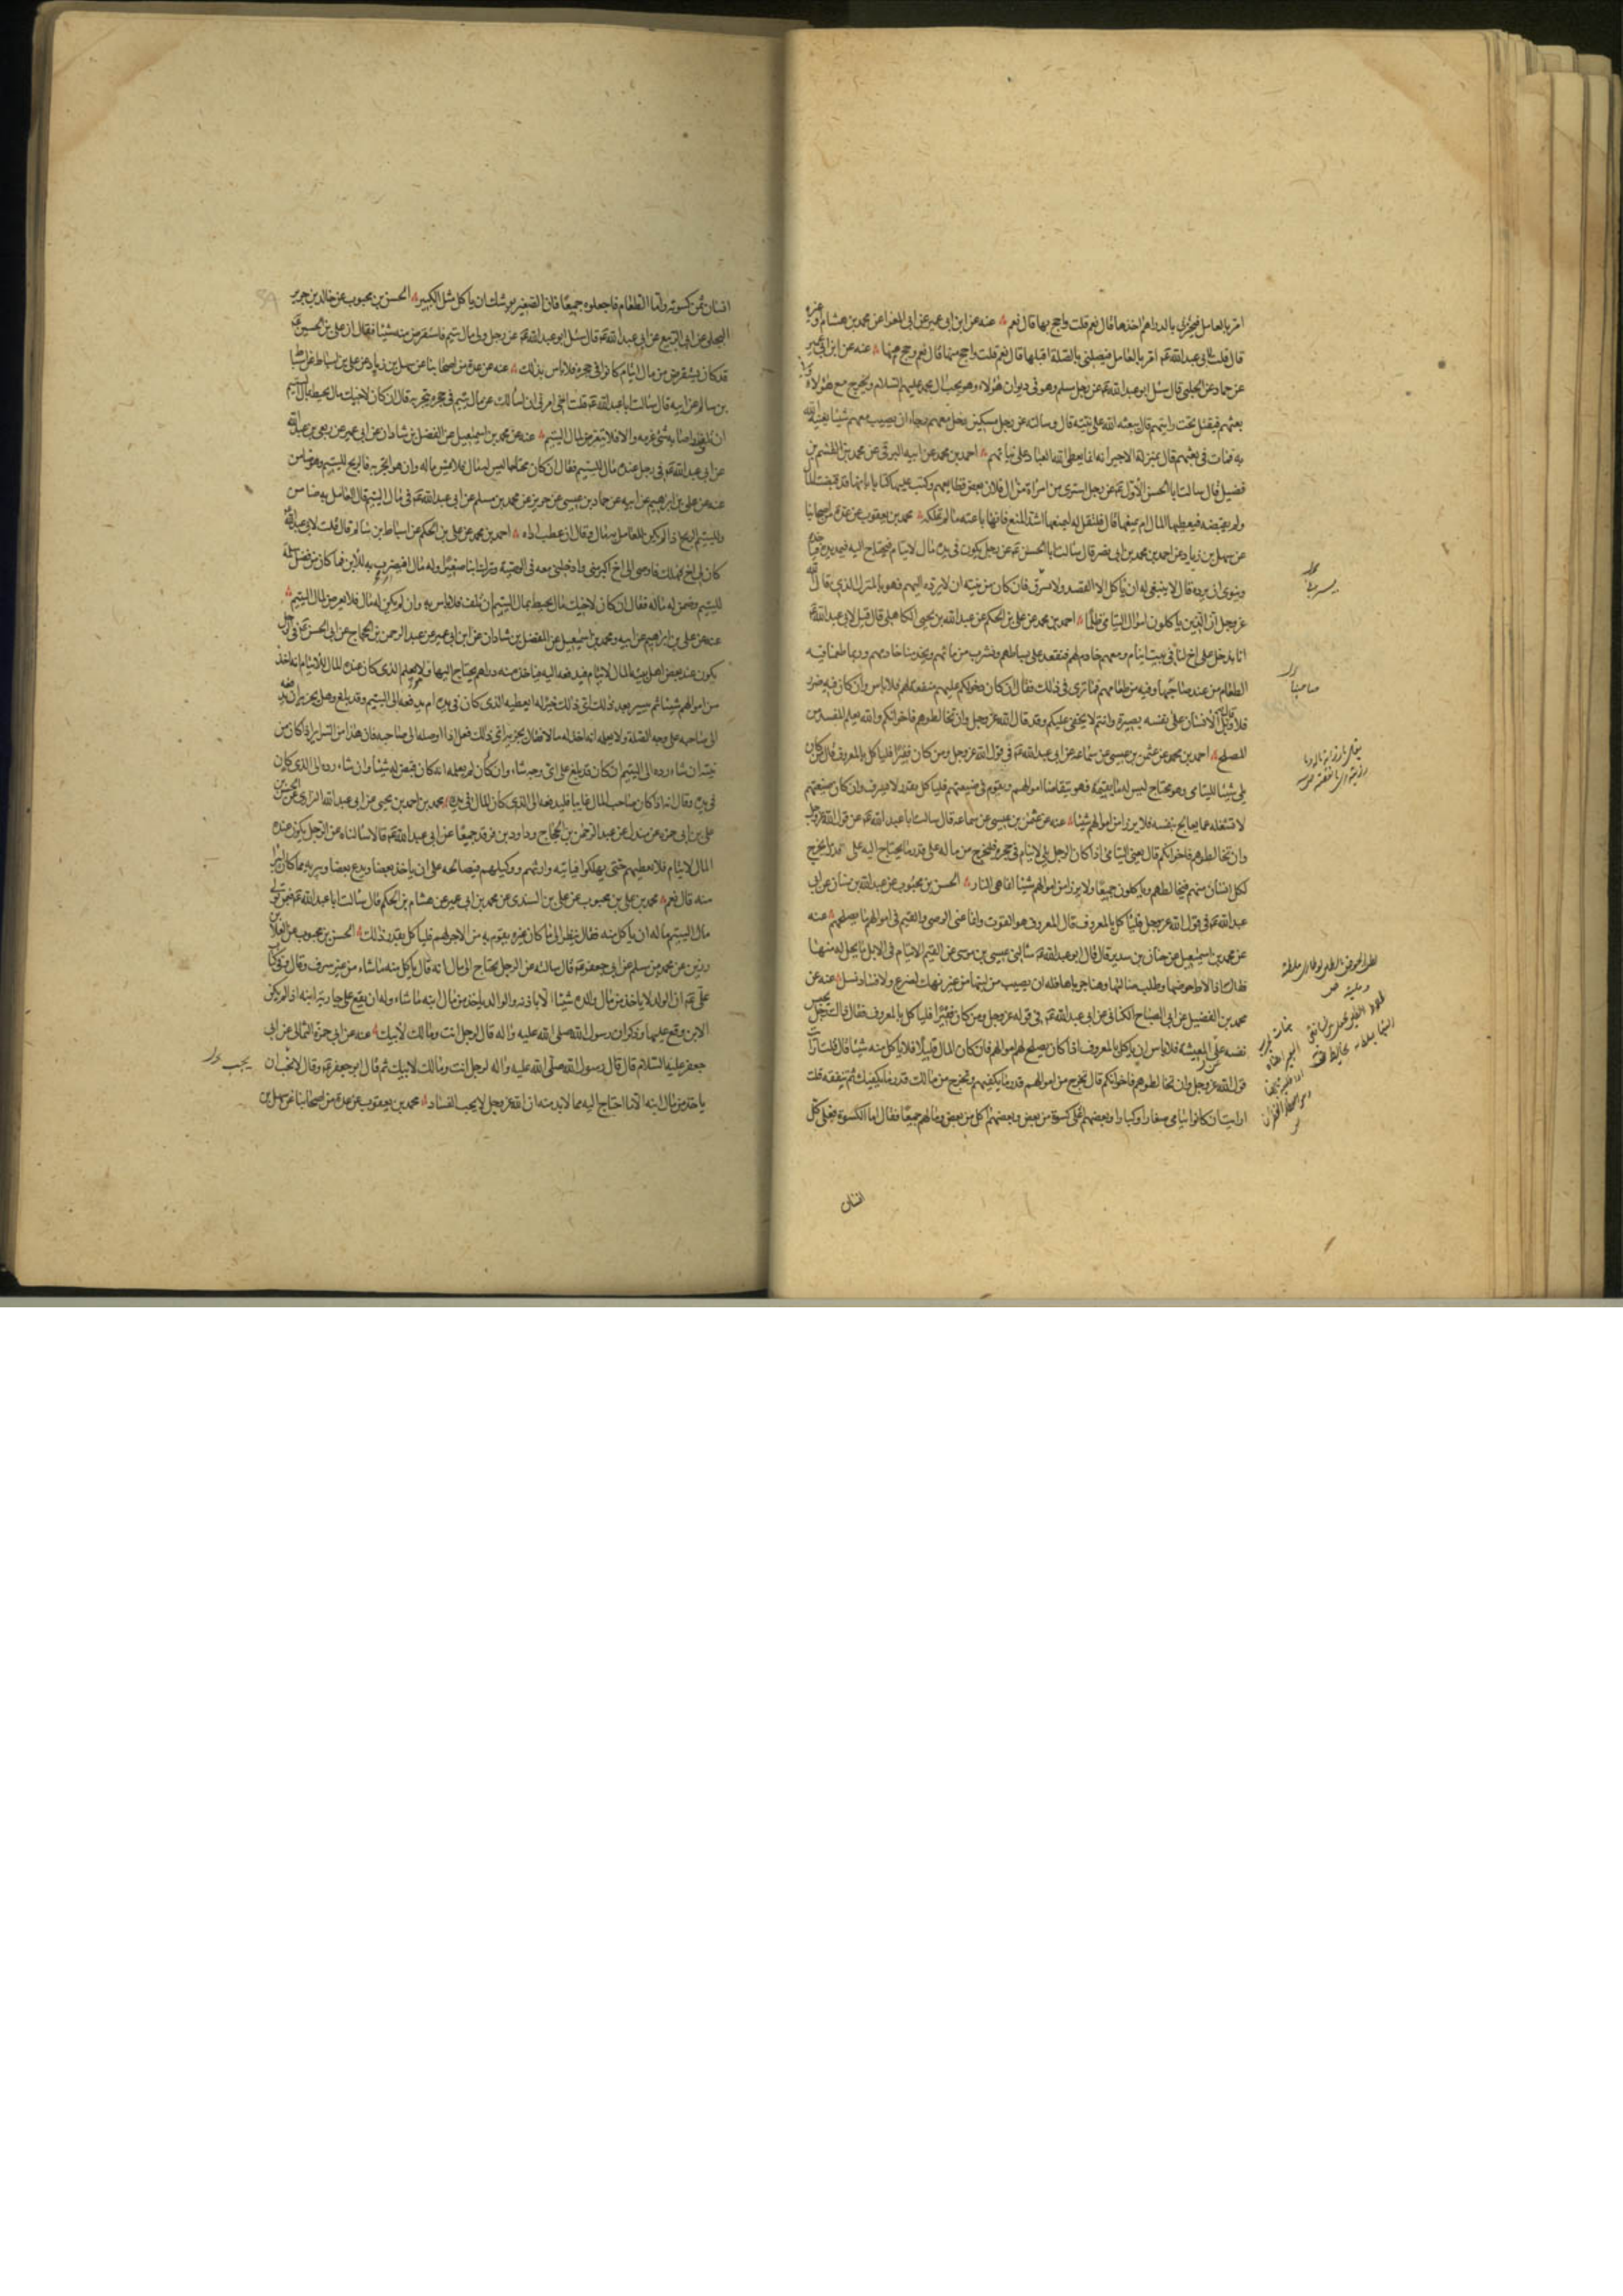 امر بالعامل فيجيزني بالدراهم اخذها قال نعم قلت واحج بها قال نعم عنه عن ابن ابي عمير عن ابي المعزا عن محمد بن هشام او غيره
قال قلت لابي عبد الله عم امر بالعامل فيصلني بالصلة اقبلها قال نعم قلت واحج منها قال نعم وحج منها عنه عن ابن ابي عمير
عن حماد عن الحلبي قال سئل ابو عبد الله عم عن رجل مسلم وهو في ديوان هؤلاء وهو يحب ال محمد عليهم السلام ويخرج مع هؤلاء
بعثهم فيقتل تحت رايتهم قال يبعثه الله على نيته قال وسالته عن رجل مسكين دخل معهم رجاء ان يصيب معهم شيئا يغنيه الله
به فمات في بعثهم قال بمنزلة الاجير انه انما يعطي الله العباد على نياتهم احمد بن محمد عن ابيه البرقي عن محمد بن القسم بن
فضيل قال سالت ابا الحسن الاول عم عن رجل اشترى من امراة من ال فلان بعض قطايعهم وكتب عليها كتابا بانها قد قبضت المال
ولم يقبضه فيعطيها المال ام يمنعها قال فليقل له ليمنعها اشد المنع فانها باعته ما لم تملكه محمد بن يعقوب عن عدة من اصحابنا
عن سهل بن زياد عن احمد بن محمد بن ابي نصر قال سالت ابا الحسن عم عن رجل يكون في يده مال لايتام فيحتاج اليه فيمد يده فياخذه
وينوي ان يرده قال لا ينبغي له ان ياكل الا القصد ولا يسرف فان كان من نيته ان لا يرده اليهم فهو بالمنزل الذي قال الله
عز وجل ان الذين ياكلون اموال اليتامى ظلما احمد بن محمد عن علي بن الحكم عن عبد الله بن يحيى الكاهلي قال قيل لابي عبد الله عم
انا ندخل على اخ لنا في بيت ايتام ومعهم خادم لهم فنقعد على بساطهم ونشرب من مائهم ويخدمنا خادمهم وربما طعمنا فيه
الطعام من عند صاحبها وفيه من طعامهم فما ترى في ذلك فقال ان كان دخولكم عليهم منفعة لهم فلا باس وان كان فيه ضرر
فلا وقال بل الانسان على نفسه بصيرة وانتم لا يخفى عليكم وقد قال الله عز وجل وان تخالطوهم فاخوانكم والله يعلم المفسد من
المصلح احمد بن محمد عن عثمن بن عيسى عن سماعة عن ابي عبد الله عم في قول الله عز وجل ومن كان فقيرا فلياكل بالمعروف قال من كان
يلي شيئا لليتامى وهو محتاج ليس له ما يقيمه فهو يتقاضا اموالهم ويقوم في ضيعتهم فلياكل بقدر لا يسرف وان كان ضيعتهم
لا تشغله عما يعالج بنفسه فلا يرزأن من اموالهم شيئا عنه عن عثمن بن عيسى عن سماعة قال سالت ابا عبد الله عم عن قول الله عز وجل
وان تخالطوهم فاخوانكم قال يعني اليتامى اذا كان الرجل يلي لايتام في حجره فليخرج من ماله على قدر ما يحتاج اليه على قدر ما يخرج
لكل انسان منهم فيخالطهم وياكلون جميعا ولا يرزأن من اموالهم شيئا انما هي النار الحسن بن محبوب عن عبد الله بن سنان عن ابي
عبد الله عم في قول الله عز وجل فلياكل بالمعروف قال المعروف هو القوت وانما عنى الوصي والقيم في اموالهم ما يصلحهم عنه
عن محمد بن اسمعيل عن حنان بن سدير قال قال ابو عبد الله عم سالني عيسى بن موسى عن القيم لايتام في الابل ما يحل له منها
فقلت اذا لاط حوضها وطلب ضالتها وهنأ جرباها فله ان يصيب من لبنها من غير نهك لضرع ولا فساد نسل عنه عن
محمد بن الفضيل عن ابي الصباح الكناني عن ابي عبد الله عم في قوله عز وجل ومن كان فقيرا فلياكل بالمعروف فقال ذلك رجل يحبس
نفسه عن المعيشة فلا باس ان ياكل بالمعروف اذا كان يصلح لهم اموالهم فان كان المال قليلا فلا ياكل منه شيئا قال قلت ارايت
قول الله عز وجل وان تخالطوهم فاخوانكم قال تخرج من اموالهم قدر ما يكفيهم وتخرج من مالك قدر ما يكفيك ثم تنفقه قلت
ارايت ان كانوا يتامى صغارا وكبارا وبعضهم اعلى كسوة من بعض وبعضهم اكل من بعض ومالهم جميعا فقال اما الكسوة فعلى كل
انسان
صاحبنا
انسان ثمن كسوته واما الطعام فاجعلوه جميعا فان الصغير يوشك ان ياكل مثل الكبير الحسن بن محبوب عن خالد بن جرير
البجلي عن ابي الربيع عن ابي عبد الله عم قال سئل ابو عبد الله عم عن رجل ولي مال يتيم فاستقرض منه شيئا فقال ان علي بن الحسين عم
قد كان يستقرض من مال ايتام كانوا في حجره فلا باس بذلك عنه عن عدة من اصحابنا عن سهل بن زياد عن علي بن اسباط عن اسباط
بن سالم عن ابيه قال سالت ابا عبد الله عم قلت اخي امرني ان اسالك عن مال يتيم في حجره يتجر به قال ان كان لاخيك مال يحيط بمال اليتيم
ان تلف او اصابه شئ غرمه والا فلا يتعرض لمال اليتيم عنه عن محمد بن اسمعيل عن الفضل بن شاذان عن ابن ابي عمير عن ربعي بن عبد الله
عن ابي عبد الله عم في رجل عنده مال لليتيم فقال ان كان محتاجا ليس له مال فلا يمس ماله وان هو اتجر به فالربح لليتيم وهو ضامن
عنه عن علي بن ابراهيم عن ابيه عن حماد بن عيسى عن حريز عن محمد بن مسلم عن ابي عبد الله عم في مال اليتيم قال العامل به ضامن
ولليتيم الربح اذا لم يكن للعامل به مال وقال ان عطب اداه احمد بن محمد عن علي بن الحكم عن اسباط بن سالم قال قلت لابي عبد الله عم
كان لي اخ هلك فاوصى الى اخ اكبر مني وادخلني معه في الوصية وترك ابنا صغيرا وله مال افيضرب به للابن فما كان من فضل سلمه
لليتيم وضمن له ماله فقال ان كان لاخيك مال يحيط بمال اليتيم ان تلف فلا باس به وان لم يكن له مال فلا يعرض لمال اليتيم
عنه عن علي بن ابراهيم عن ابيه ومحمد بن اسمعيل عن الفضل بن شاذان عن ابن ابي عمير عن عبد الرحمن بن الحجاج عن ابي الحسن عم في رجل
يكون عند بعض اهل بيته المال لايتام فيدفعه اليه فياخذ منه دراهم يحتاج اليها ولا يعلم الذي كان عنده المال للايتام انه اخذ
من اموالهم شيئا ثم يتيسر بعد ذلك اي ذلك خير له ايعطيه الذي كان في يده ام يدفعه الى اليتيم وقد بلغ وهل يجزيه ان يدفعه
الى صاحبه على وجه الصلة ولا يعلمه انه اخذ له مالا فقال يجزيه اي ذلك فعل اذا اوصله الى صاحبه فان هذا من السراير اذا كان من
نيته ان شاء رده الى اليتيم ان كان قد بلغ على اي وجه شاء وان كان لم يعلمه انه كان قبض له شيئا وان شاء رده الى الذي كان
في يده وقال انه اذا كان صاحب المال غايبا فليدفعه الى الذي كان المال في يده محمد بن احمد بن يحيى عن ابي عبد الله الرازي عن الحسن بن
علي بن ابي حمزة عن مندل عن عبد الرحمن بن الحجاج وداود بن فرقد جميعا عن ابي عبد الله عم قالا سالناه عن الرجل يكون عنده
المال لايتام فلا يعطيهم حتى يهلكوا فياتيه وارثهم ووكيلهم فيصالحه على ان ياخذ بعضا ويدع بعضا ويبريه مما كان ايبرأ
منه قال نعم محمد بن علي بن محبوب عن علي بن السندي عن محمد بن ابي عمير عن هشام بن الحكم قال سالت ابا عبد الله عم فيمن تولى
مال اليتيم ماله ان ياكل منه فقال ينظر الى ما كان غيره يقوم به من الاجر لهم فلياكل بقدر ذلك الحسن بن محبوب عن العلا بن
رزين عن محمد بن مسلم عن ابي جعفر عم قال سالته عن الرجل يحتاج الى مال ابنه قال ياكل منه ما شاء من غير سرف وقال في كتاب
علي عم ان الولد لا ياخذ من مال والده شيئا الا باذنه والوالد ياخذ من مال ابنه ما شاء وله ان يقع على جارية ابنه اذا لم يكن
الابن وقع عليها وذكر ان رسول الله صلى الله عليه واله قال لرجل انت ومالك لابيك عنه عن ابي حمزة الثمالي عن ابي
جعفر عليه السلام قال قال رسول الله صلى الله عليه واله لرجل انت ومالك لابيك ثم قال ابو جعفر عم وقال لا نحب ان
ياخذ من مال ابنه الا ما احتاج اليه مما لا بد منه ان الله عز وجل لا يحب الفساد محمد بن يعقوب عن عدة من اصحابنا عن سهل بن
يحب